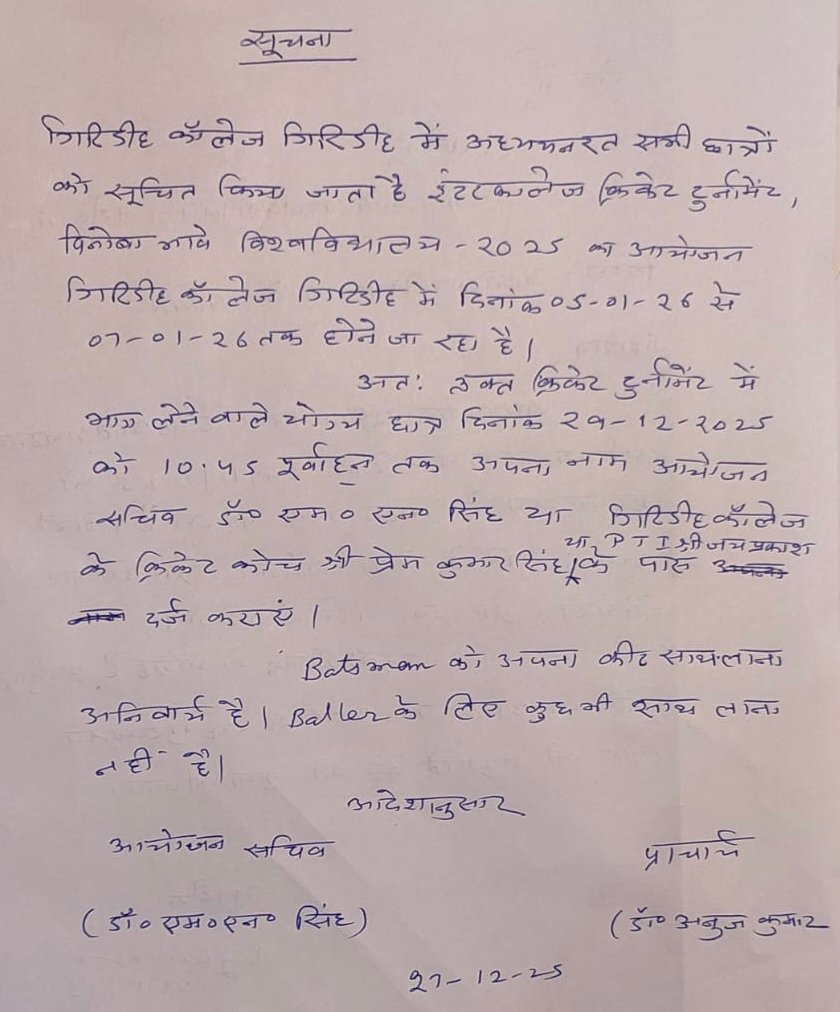 सूचना
गिरिडीह कॉलेज गिरिडीह में अध्ययनरत सभी छात्रों
को सूचित किया जाता है इंटरकालेज क्रिकेट टुर्नामेंट,
विनोबा भावे विश्वविद्यालय - 2025 का आयोजन
गिरिडीह कॉलेज गिरिडीह में दिनांक 05-01-26 से
07-01-26 तक होने जा रहा है।
अतः उक्त क्रिकेट टुर्नामेंट में
भाग लेने वाले योग्य छात्र दिनांक 29-12-2025
को 10.45 पूर्वाहन तक अपना नाम आयोजन
सचिव डॉ० एम० एन० सिंह या गिरिडीह कॉलेज
या PTI श्री जय प्रकाश
के क्रिकेट कोच श्री प्रेम कुमार सिंह के पास
दर्ज कराएं।
Batsman को अपना कीट साथ लाना
अनिवार्य है। Baller के लिए कुछ भी साथ लाना
नहीं है।
आदेशानुसार
आयोजन सचिव प्राचार्य
(डॉ० एम० एन० सिंह) (डॉ० अनुज कुमार
27-12-25